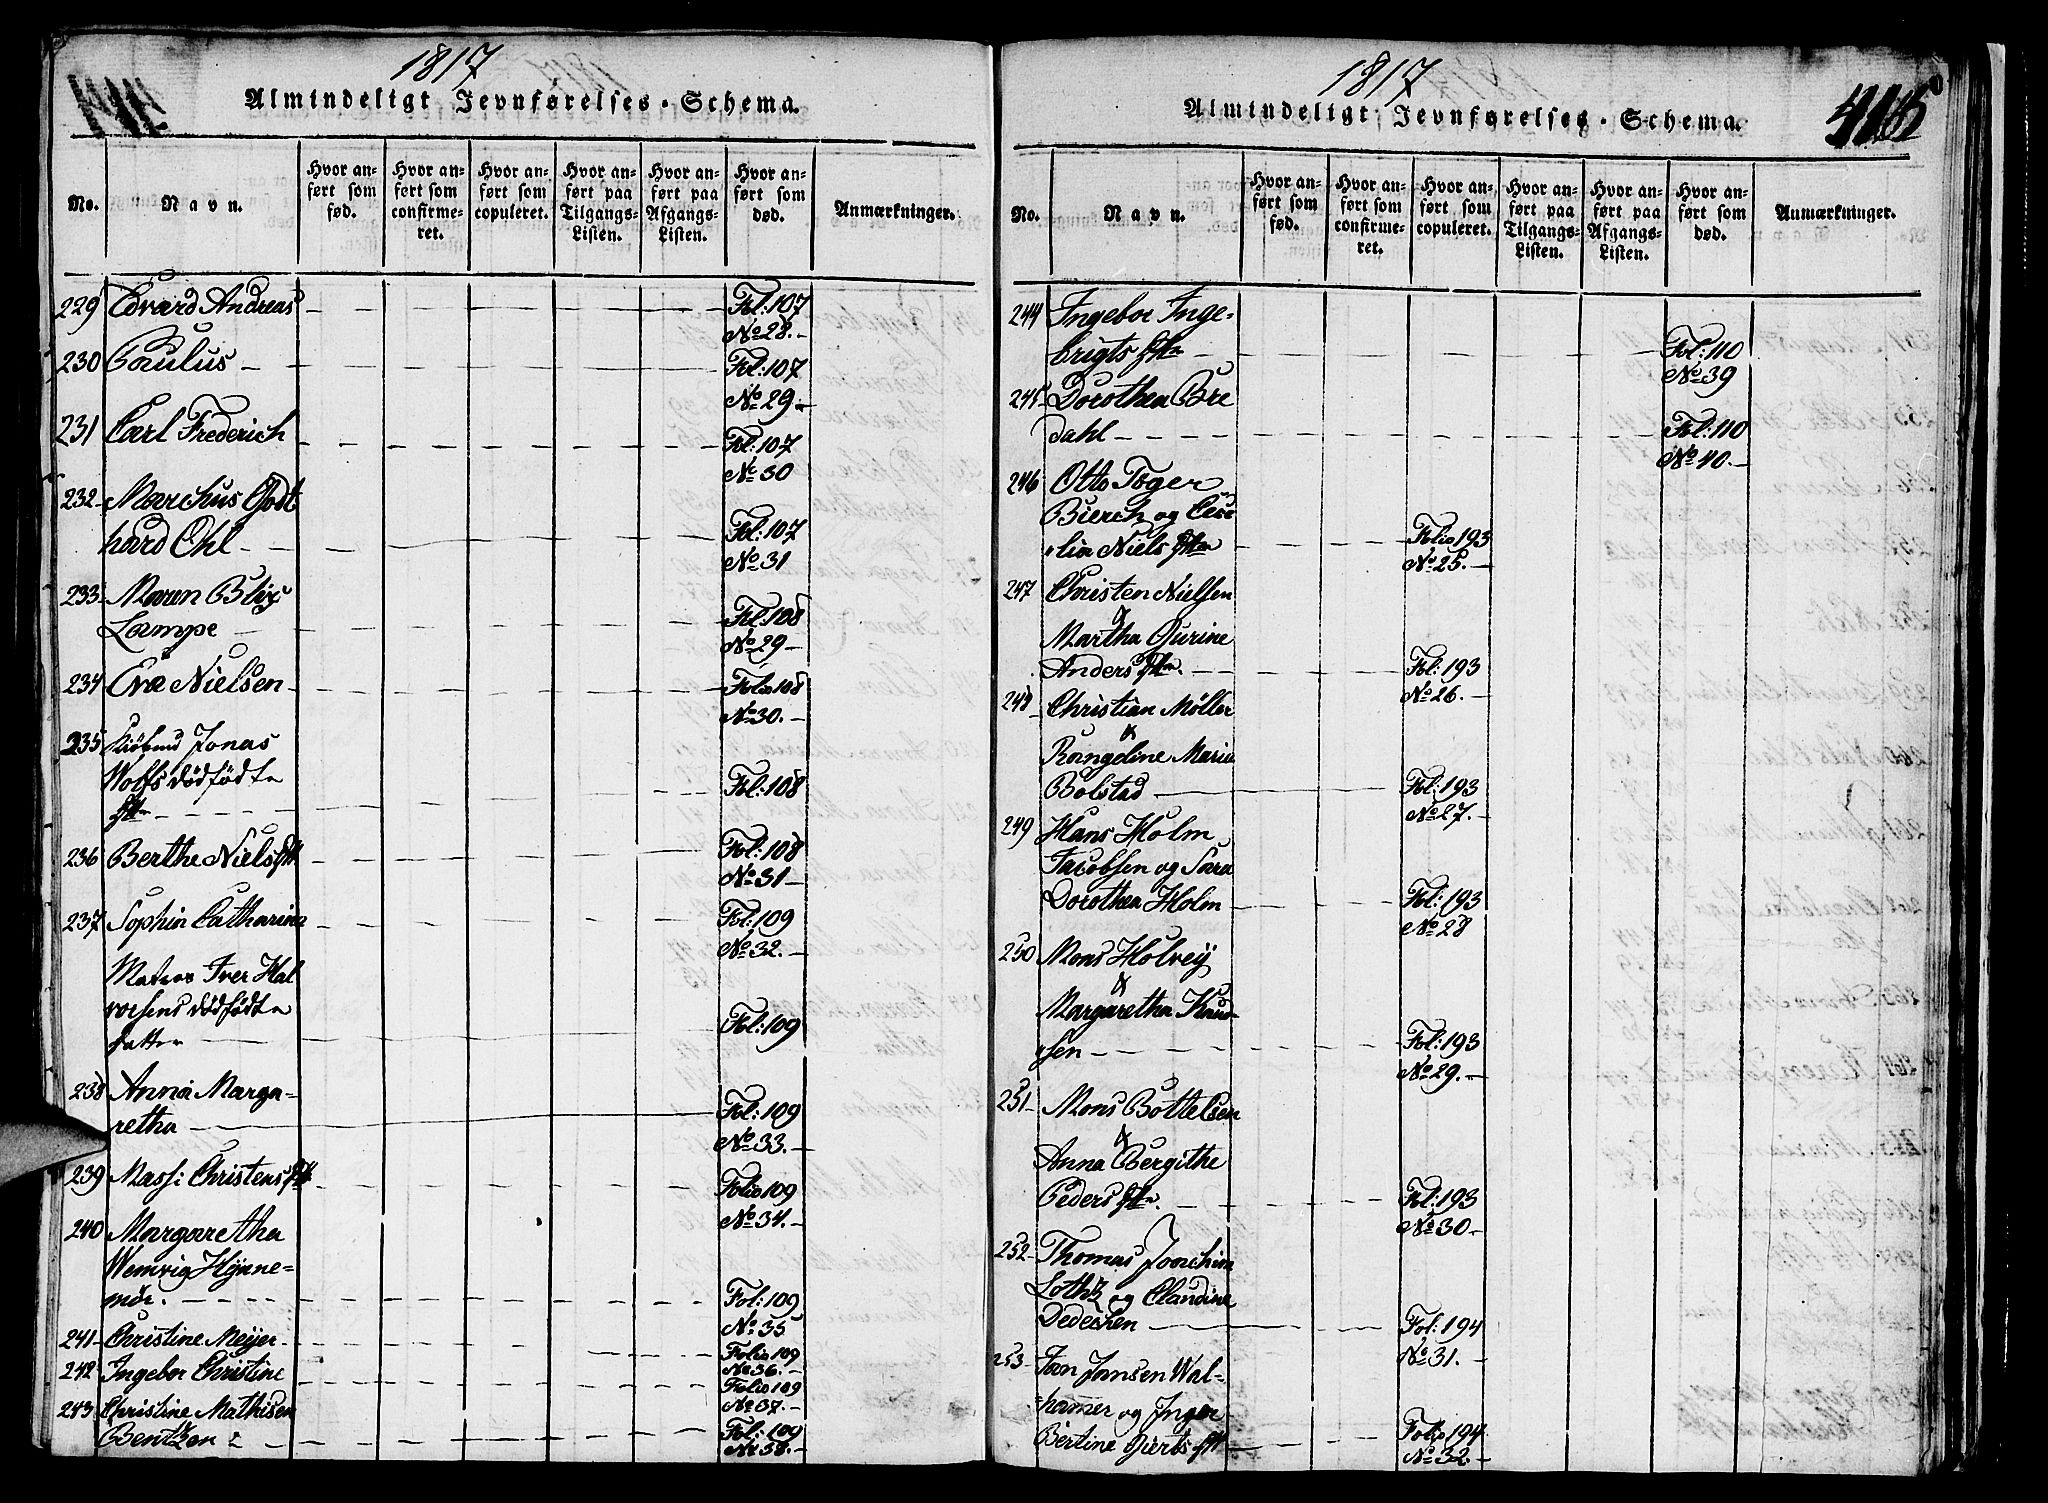 1817
Almindeligt Jevnførelses-Schema.
No.
Navn.
Hvor an-
ført som
fød.
Hvor an-
ført som
confirme-
ret.
Hvor an-
ført som
copuleret.
Hvor an-
ført paa
Tilgangs-
Listen.
Hvor an-
ført paa
Afgangs-
Listen.
Hvor an-
ført som
død.
Anmærkninger.
229 Edvard Andreas Fol:107
No 28.
230 Paulus Fol:107
No 29.
231 Carl Frederich Fol:107
No 30
232 Marchus Godt
hard Ohl Fol:107
No 31
233 Maren Blix
Lampe Fol:108
No 29
234 Eva Nielsen Folio 108
No 30.
235 Jonas
Wolfs dödfödte Fol:108
236 Berthe Niels Fol:108
No 31
237 Sophia Catharina Fol:109
No 32.
Matros Iver Hal
vorsens dödfödte
datter Fol:109
238 Anna Marga-
retha Fol:109
No 33.
239 Mass: Christens Folio 109
No 34.
240 Margaretha
Wemvig Hjønne-
mör. Fol:109
No 35
241 Christine Meijer Folio 109
No 36.
242 Ingebor Christine Folio 109
No 37.
243 Christine Mathisen
Bentzen Fol:109
No 38.
1817
Almindeligt Jevnførelses-Schema.
No.
Navn.
Hvor an-
ført som
fød.
Hvor an-
ført som
confirme-
ret.
Hvor an-
ført som
copuleret.
Hvor an-
ført paa
Tilgangs-
Listen.
Hvor an-
ført paa
Afgangs-
Listen.
Hvor an-
ført som
død.
Anmærkninger.
244 Ingebor Inge-
brigts Fol:110
No 39
245 Dorothea Bre
dahl Fol:110
No 40.
246 Otto Toger
Bierch og Cesi
lia Niels Folio 193
No 25.
247 Christen Nielsen
Martha Gurine
Anders Fol:193
No 26.
248 Christian Møller
&
Rangeline Maria
Bolstad Fol:193
No 27.
249 Hans Holm
Jacobsen og Sara
Dorothea Holm Fol:193
No 28
250 Mons Holvey
&
Margaretha Knud-
sen Fol:193
No 29.
251 Mons Bottelsen
&
Anna Bergithe
Peders Fol:193
No 30
252 Thomas Joachim
Loths og Claudine
Dedechen Fol:194
No 31.
253 Jan Jansen Wal-
hamer og Inger
Bertine Gierts Folio 194
No 32.